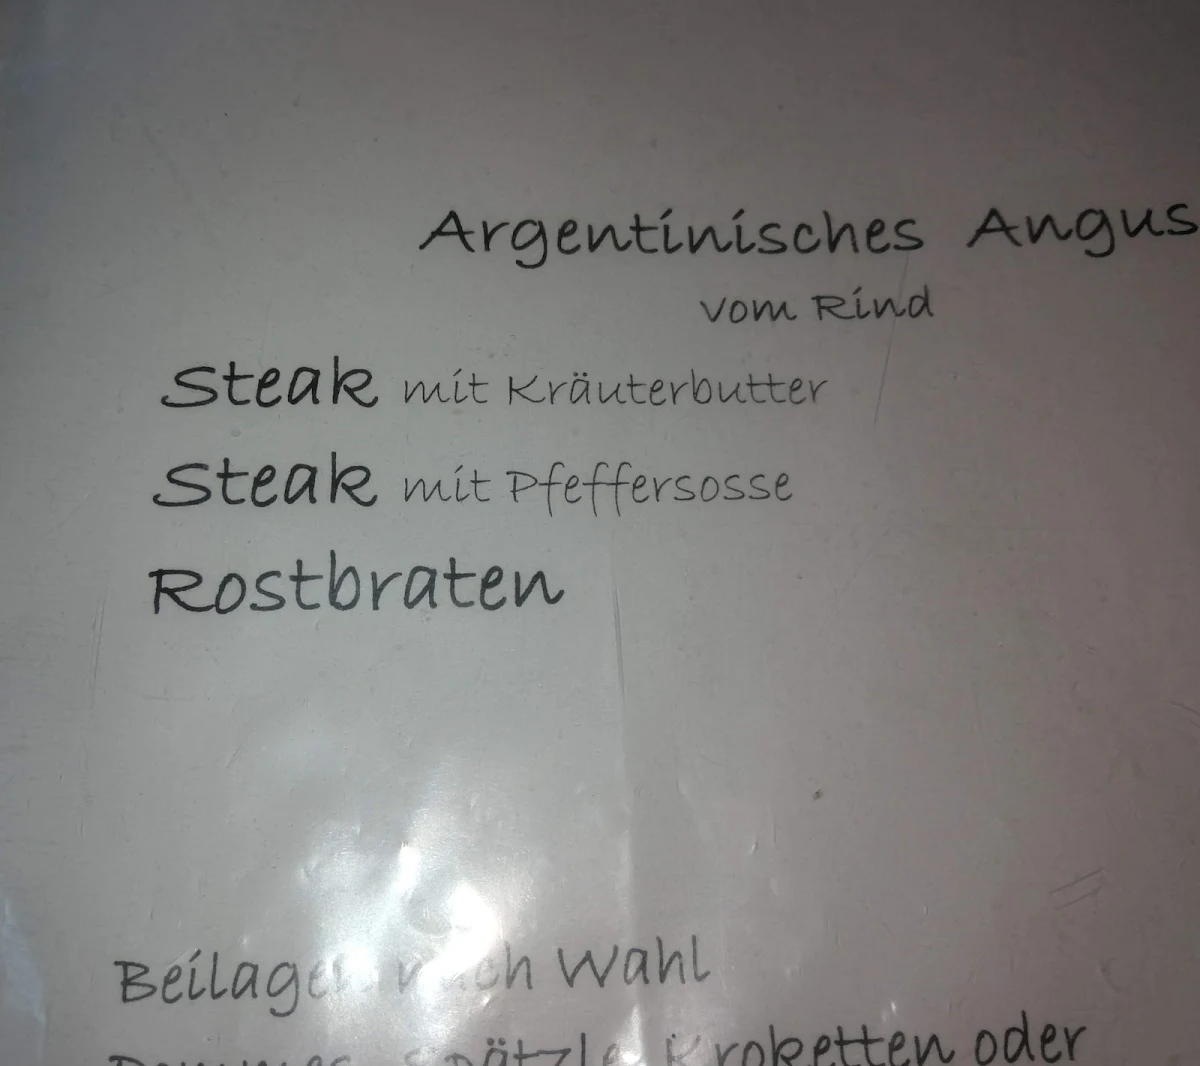 Argentinisches Angus
vom Rind
Steak mit Kräuterbutter
Steak mit Pfeffersosse
Rostbraten
Beilagen nach Wahl
Pommes, Spätzle, Kroketten oder